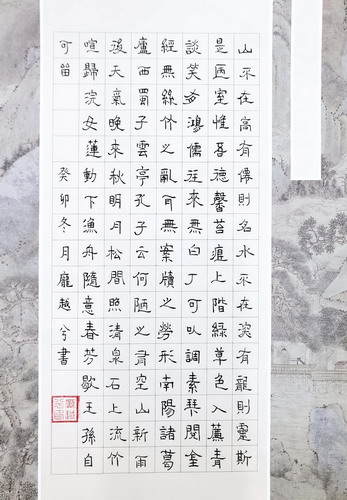 山不在高有僊則名水不在深有龍則靈斯
是陋室惟吾德馨苔痕上階綠草色入簾青
談笑有鴻儒往來無白丁可以調素琴閱金
經無絲竹之亂耳無案牘之勞形南陽諸葛
廬西蜀子雲亭孔子云何陋之有空山新雨
後天氣晚來秋明月松間照清泉石上流竹
喧歸浣女蓮動下漁舟隨意春芳歇王孫自
可留 癸卯冬月龐越兮書